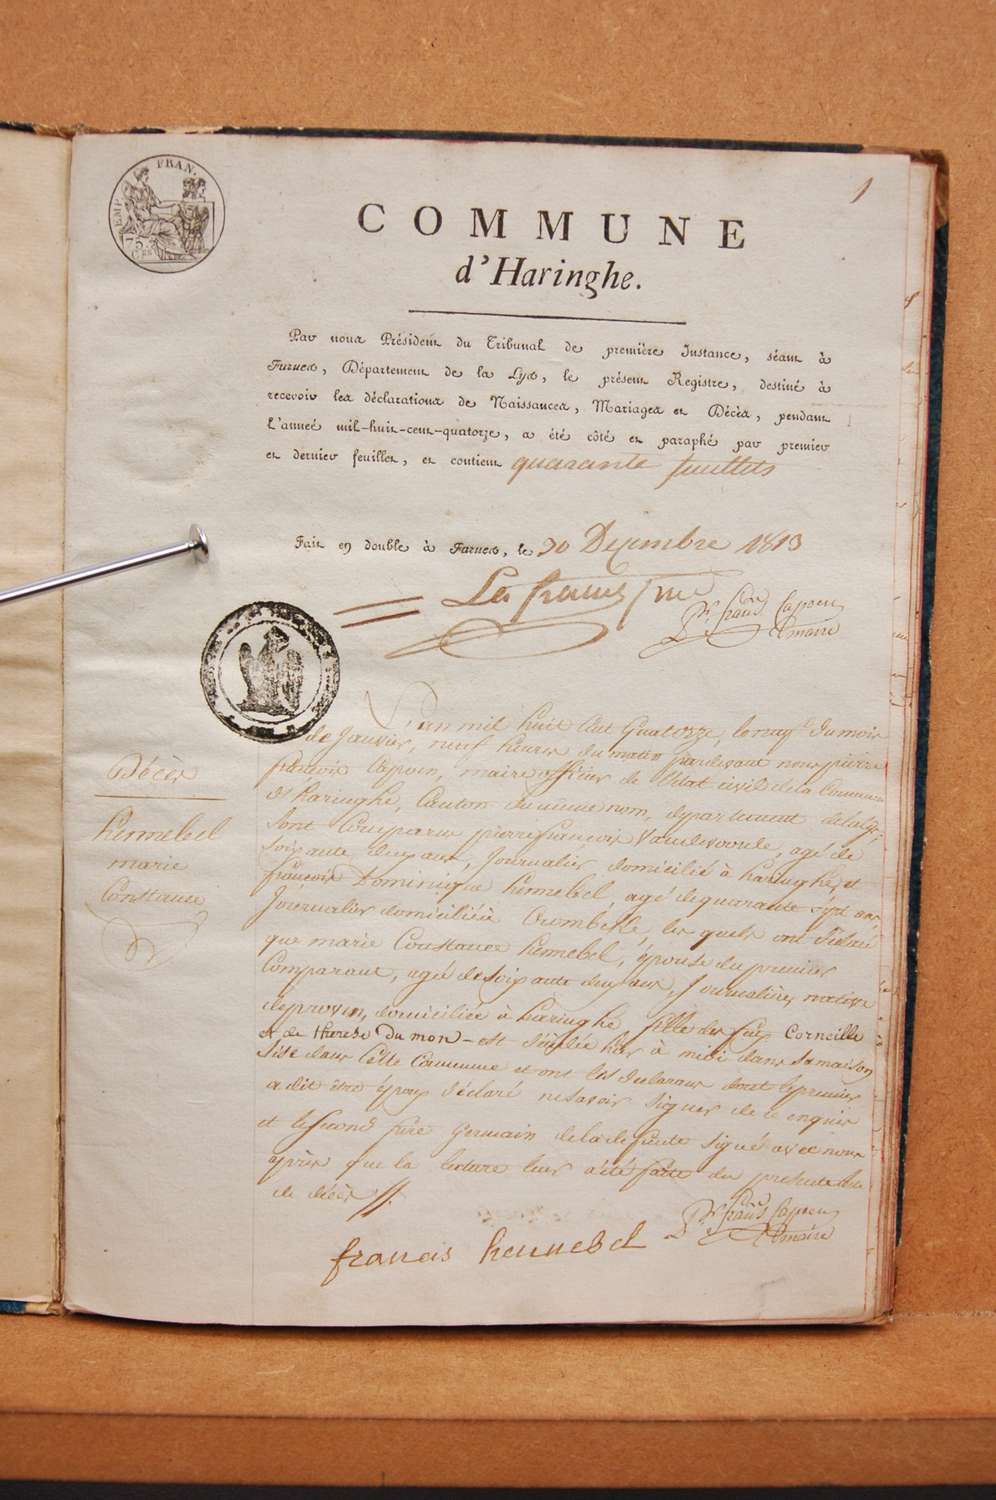 1
EMP. FRAN.
75
COMMUNE
d'Haringhe.
Par nous Président du Tribunal de première Instance, séant à
Furnes, Département de la Lys, le présent Registre, destiné à
recevoir les déclarations de Naissances, Mariages et Décès, pendant
l'année mil-huit-cent-quatorze, a été côté et paraphé par premier
et dernier feuillet, et contient quarante feuillets
Fait en double à Furnes, le 30 Decembre 1813
Pr. francs Capoen
maire
Décès
hennebel
marie
Constance
L'an mil huit Cent Quatorze, le neuf du mois
de Janvier, neuf heures du matin pardevant nous pierre
francois Capoen, maire officier de l'état civil de la Commune
d'haringhe, Canton du même nom, departement de la Lys,
sont Comparus pierre francois Vandevoorde, agé de
soixante deux ans, Journalier domicilié à haringhe, et
francois Dominique hennebel, agé de quarante sept ans
Journalier domicilié à Crombeke, les quels ont déclaré
que marie Constance hennebel, épouse du premier
Comparant, agé de soixante deux ans, Journalière, native
de proven, domiciliée à haringhe, fille de feu Corneille
et de therese Du mon - est décédée hier à midi dans sa maison
sise dans Cette Commune et ont les declarans dont le premier
a dit être époux déclaré ne savoir signer de ce enquis
et le second frère Germain de la defunte signé avec nous
après que la lecture leur a été faite du present acte
de décès
francis hennebel
Pr. francs Capoen
maire